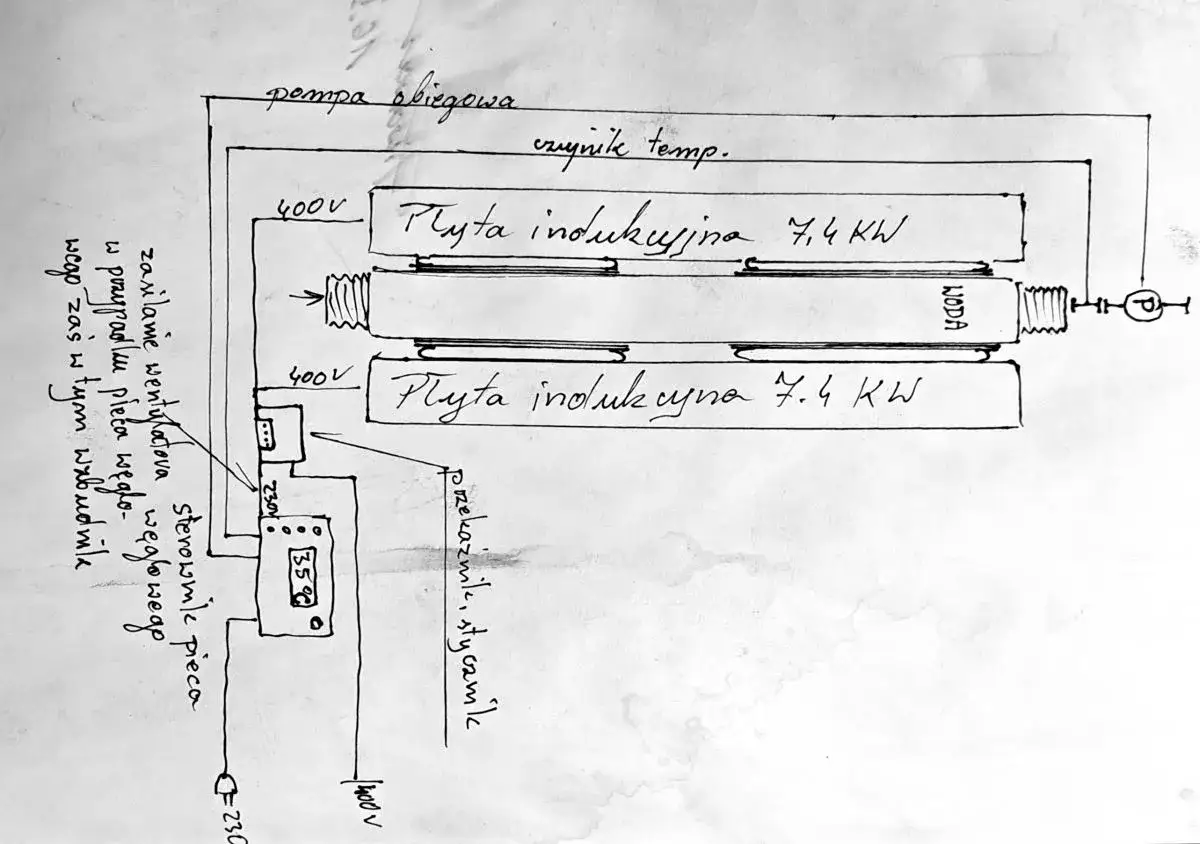 pompa obiegowa
czujnik temp.
400V
Płyta indukcyjna 7.4 KW
WODA
P
400V
Płyta indukcyjna 7.4 KW
zasilanie wentylatora węglowego
w przypadku pieca węglo-
wego zaś w tym wzbudnik
230V
sterownik pieca
35°C
przekaźnik, stycznik
400V
=230